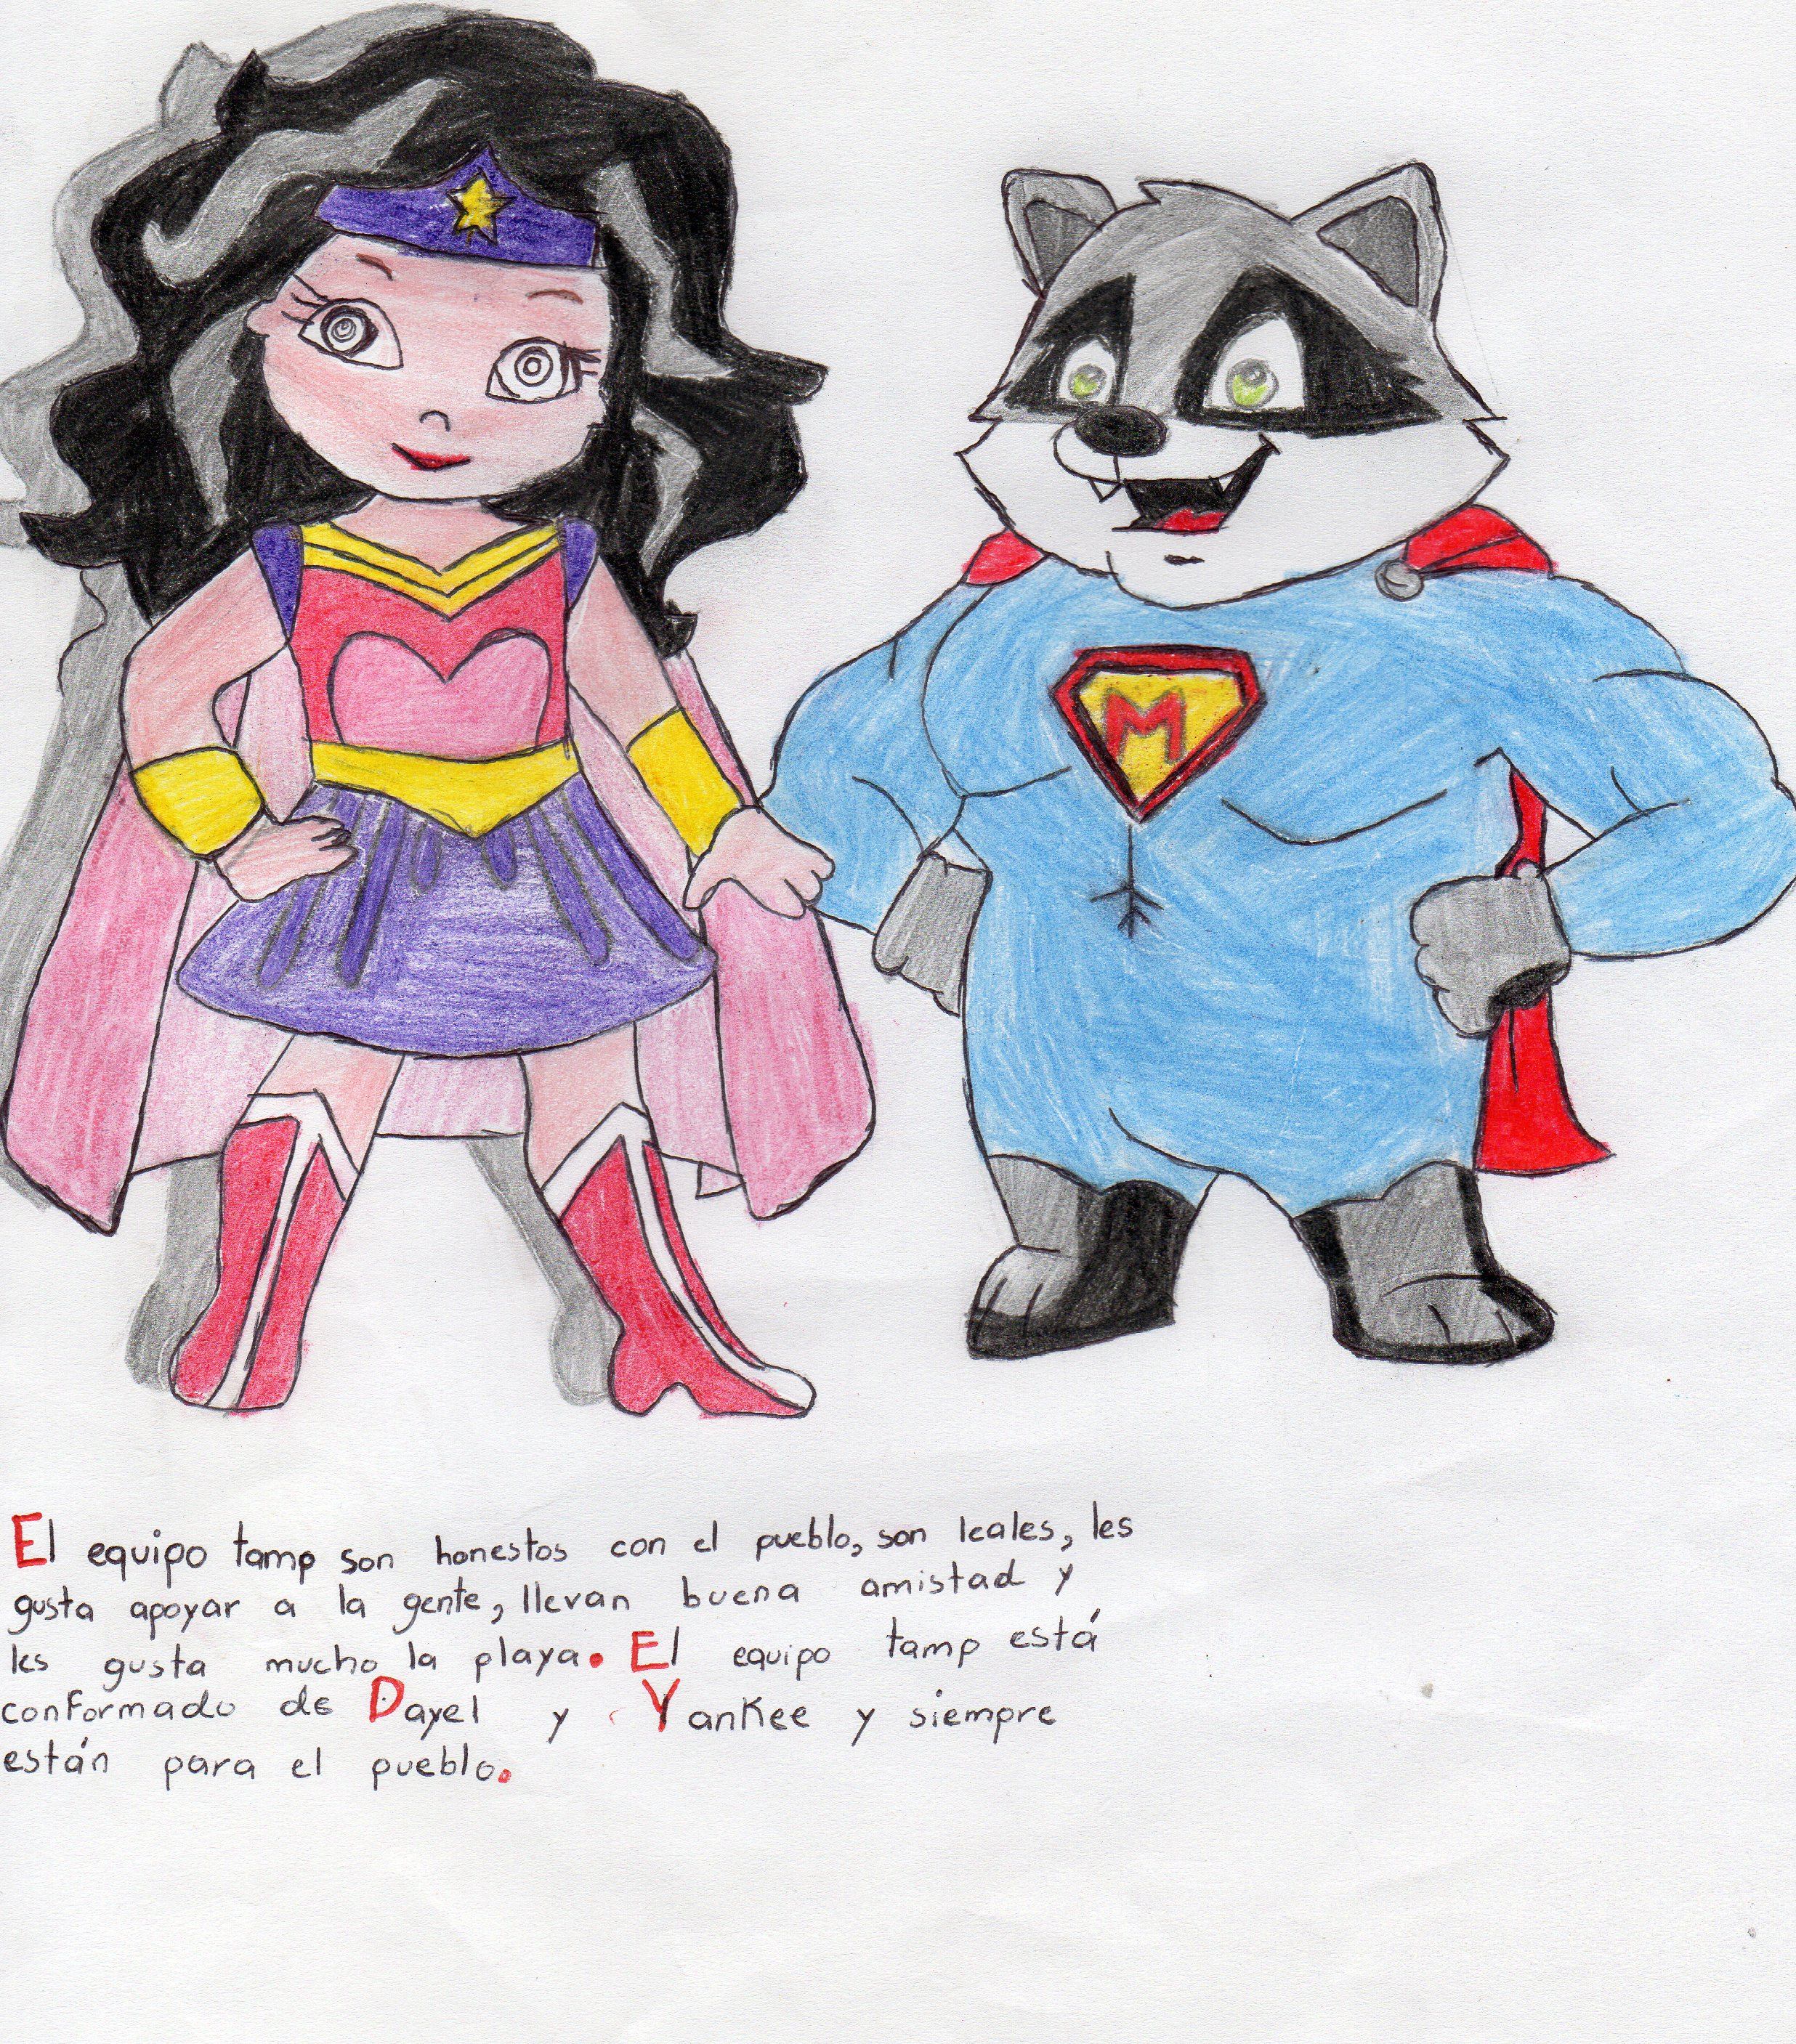 M
El equipo tamp son honestos con el pueblo, son leales, les
gusta apoyar a la gente, llevan buena amistad y
les gusta mucho la playa. El equipo tamp está
conformado de Dayel y Yankee y siempre
están para el pueblo.